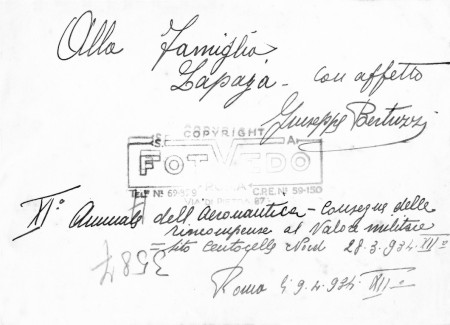 Alla Famiglia
Zapazà - con affetto
Giuseppe Bertuzzi
COPYRIGHT
S. A.
FOTVEDO
ROMA
TELF. Nº 59- C.P.E. Nº 59-150
87
XIº Annuale dell'Aeronautica - Consegna delle
ricompense al Valore militare
= sito Centocelle Nord 28.3.934.XIIº=
3587
Roma li 9.4.934.XIIº